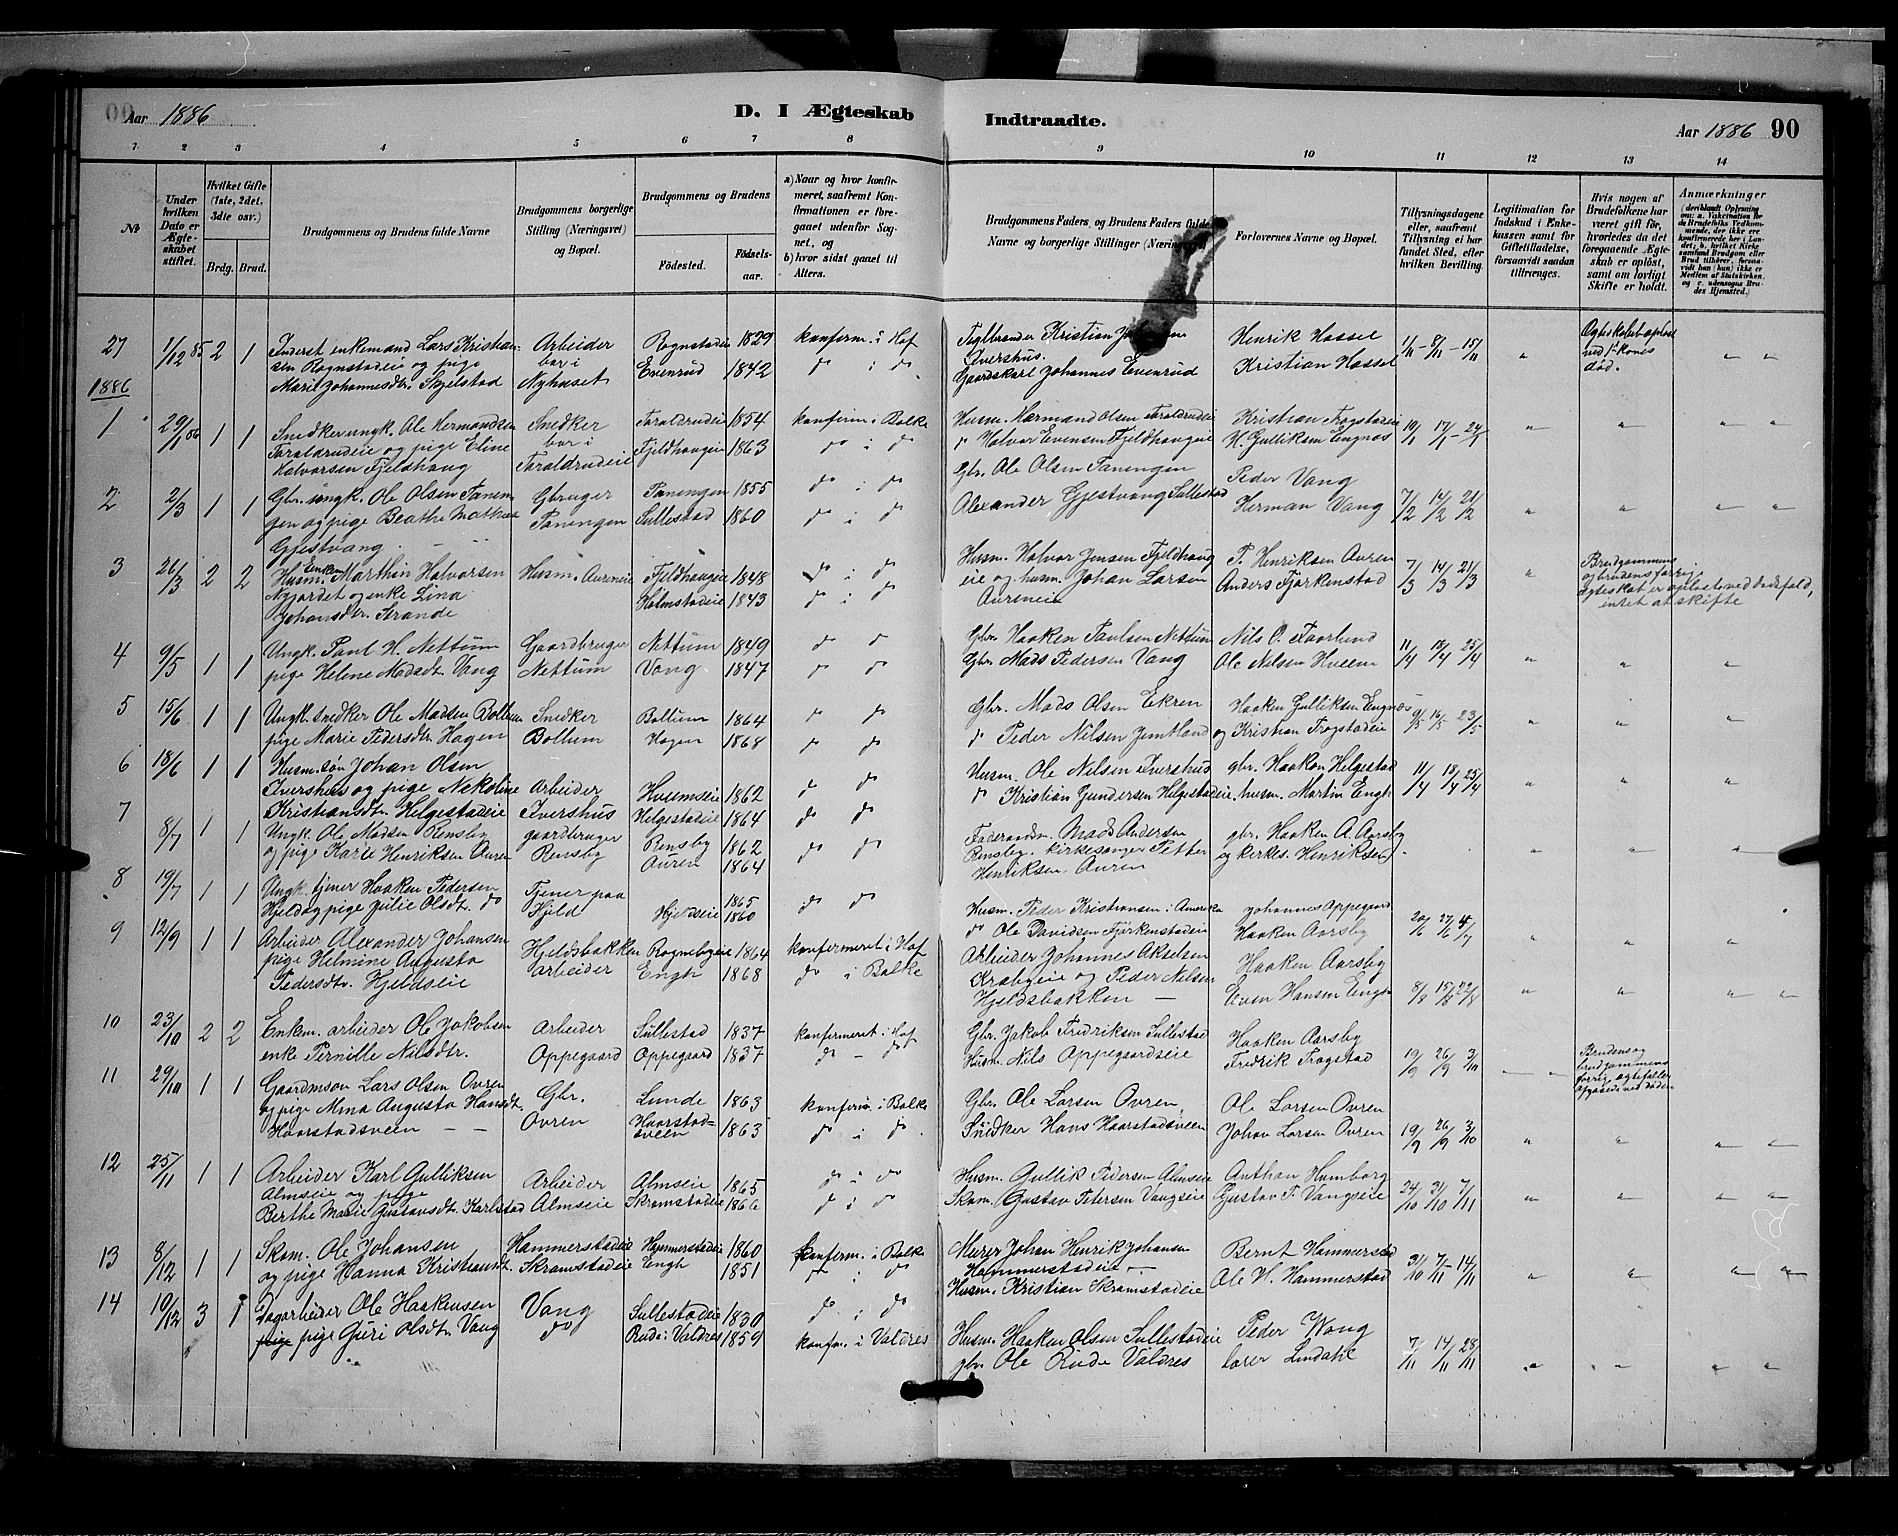 Aar 1886 D. I Ægteskab Indtraadte. Aar 1886 90
1 2 3 4 5 6 7 8 9 10 11 12 13 14
№
Under hvilken Dato er Ægteskabet stiftet.
Hvilket Gifte (1ste, 2det, 3die osv.)
Brdg. Brud.
Brudgommens og Brudens fulde Navne
Brudgommens borgerlige Stilling (Næringsvei) og Bopæl.
Brudgommens og Brudens
Födested. Födselsaar.
a) Naar og hvor konfirmeret, saafremt Konfirmationen er foregaaet udenfor Sognet, og
b) hvor sidst gaaet til Alters.
Brudgommens Faders og Brudens Faders fulde Navne og borgerlige Stillinger
Forlovernes Navne og Bopæl.
Tillysningsdagene eller, saafremt Tillysning ei har fundet Sted, efter hvilken Bevilling.
Legitimation for Indskud i Enkekassen samt for Giftetilladelse, forsaavidt saadan tiltrænges.
Hvis nogen af Brudefolkene har været gift för, hvorledes da det foregaaende Ægteskab er oplöst, samt om lovligt Skifte er holdt.
Anmærkninger
27 1/12 85 2 1 Inderst enkemand Lars Kristiansen Rognstadeie og pige Marit Johannesdtr. Skjelstad
Arbeider bor i Nyhuset
Rognstadeie 1829 Evenrud 1842
konferm. i Hof do i do
Teglbrænder Kristian Ivershus. Gaardskarl Johannes Evenrud
Henrik Hassel Kristian Hassel
1/11 - 8/11 - 15/11
Ægteskabet opløst ved 1. kones død.
1886
1 29/1 86 1 1 Snedker ungk. Ole Hermandsen Taraldrudeie og pige Eline Halvorsen Fjeldhaug
Snedker bor i Taraldrudeie
Taraldrudeie 1854 Fjeldhaugeie 1863
konferm. i Balke do i do
Husm. Hermand Olsen Taraldrudeie do Halvor Evensen Fjeldhaugeie
Kristian Trogstadeie H. Gulliksen Engnæs
10/1 17/1 - 24/1
2 2/3 1 1 Gbr. ungk. Ole Olsen Paningen og pige Beathe Mathea Gjestvang
Gbruger Paningen
Paningen 1855 Sullestad 1860
do i do do i do
Gbr. Ole Olsen Paningen Alexander Gjestvang Sullestad
Peder Vang Herman Vang
7/2 14/2 21/2
3 26/3 2 2 Enkem. Husm. Marthin Halvorsen Nyjordet og enke Lina Johansdtr. Strande
Husm. Aureneie
Fjeldhaugeie 1848 Holmstadeie 1843
do i do do i do
Husm. Halvor Jensen Fjeldhaugeie og husm. Johan Larsen Aureneie
P. Henriksen Auren Anders Fjørkenstad
7/3 14/3 21/3
Brudgommens og brudens forrige ægteskab er opløste ved dødsfald, intet at skifte
4 9/5 1 1 Ungk. Paul H. Nettum pige Helene Madsdt. Vang
Gaardbruger Nettum
Nettum 1849 Vang 1847
do do do do
Gbr. Haaken Paulsen Nettum Gbr. Mads Pedersen Vang
Nils O. Faarlund Ole Nilsen Hveem
11/4 18/4 25/4
5 15/6 1 1 Ungk. snedker Ole Madsen Bollum pige Marie Pedersdtr. Hagen
Snedker Bollum
Bollum 1864 Hagen 1868
do do do do
Gbr. Mads Olsen Ekren do Peder Nilsen Jemtland
Haaken Gulliksen Engnæs og Kristian Trogstadeie
9/5 16/5 23/5
6 18/6 1 1 Husm. søn Johan Olsen Ivershus og pige Nekoline Kristiansdt. Helgestadeie
Arbeider Ivershus
Hveemseie 1862 Helgestadeie 1864
do do do do
Husm. Ole Nilsen Ivershus do Kristian Gundersen Helgestadeie
gbr. Haakon Helgestad husm. Martin Engh
11/4 18/4 25/4
7 8/7 1 1 Ungk. Ole Madsen Rensby og pige Karie Henriksen Auren
gaardbruger Rensby
Rensby 1862 Auren 1864
do do
Føderaadsm. Mads Andersen Rensby. Kirkesanger Petter Henriksen Auren
gbr. Haaken A. Aarsby og kirkes. Henriksen
8 19/7 1 1 Ungk. tjener Haaken Pedersen Hjeld og pige Julie Olsdt. do
Tjener paa Hjeld
Hjeldseie 1865 1860
do do
Husm. Peder Kristiansen i Amerika do Ole Davidsen Fjørkenstadeie
Johannes Oppegaard Haaken Aarsby
20/6 27/6 4/7
9 12/9 1 1 Arbeider Alexander Johansen pige Helmine Augusta Pedersdtr. Hjeldseie
Hjeldsbakken arbeider
Rognebyeie 1864 Engh 1868
konfermeret i Hof do i Balke
Arbeider Johannes Akselsen Krabyeie og Peder Nilsen Hjeldsbakken
Haaken Aarsby Even Hansen Engh
8/8 15/8 22/8
10 23/10 2 2 Enkem. arbeider Ole Jakobsen enke Pernille Nilsdtr.
Arbeider Oppegaard
Sullestad 1837 Oppegaard 1837
konfermeret i Hof do - do
Gbr. Jakob Fredriksen Sullestad Husm. Nils Oppegaardseie
Haaken Aarsby Fredrik Trogstad
19/9 26/9 3/10
Brudens og brudgommens forrige ægtefæller afgaaede ved døden
11 29/10 1 1 Gaardmson Lars Olsen Ovren og pige Mina Augusta Hansdt. Haarstadsveen
Gbr. Ovren
Lunde 1863 Haarstadsveen 1863
konferm. i Balke do i do
Gbr. Ole Larsen Ovren Snedker Hans Haarstadsveen
Ole Larsen Ovren Johan Larsen Ovren
19/9 26/9 3/10
12 25/11 1 1 Arbeider Karl Gulliksen Almseie og pige Berthe Marie Gustavsdt. Karlstad
Arbeider Almseie
Almseie 1865 Skramstadeie 1866
do i do do i do
Husm. Gullik Pedersen Almseie Skom. Gustav Petersen Vangseie
Anthon Humborg Gustav P. Vangseie
24/10 31/10 7/11
13 8/12 1 1 Skom. Ole Johansen og pige Hanna Kristiansdt.
Hammerstadeie Skramstadeie
Hammerstadeie 1860 Engh 1851
konferm. i Balke do i do
Murer Johan Henrik Johansen Hammerstadeie Husm. Kristian Skramstadeie
Bernt Hammerstad Ole H. Hammerstad
31/10 7/11 - 14/11
14 10/12 3 1 Dagarbeider Ole Haakensen pige Guri Olsdt. Vang
Vang do
Sullestadeie 1830 Rude i Valdres 1859
do i do konfm. i Valdres
Husm. Haaken Olsen Sullestadeie gbr. Ole Rude Valdres
Peder Wang lærer Lindahl
7/11 14/11 28/11